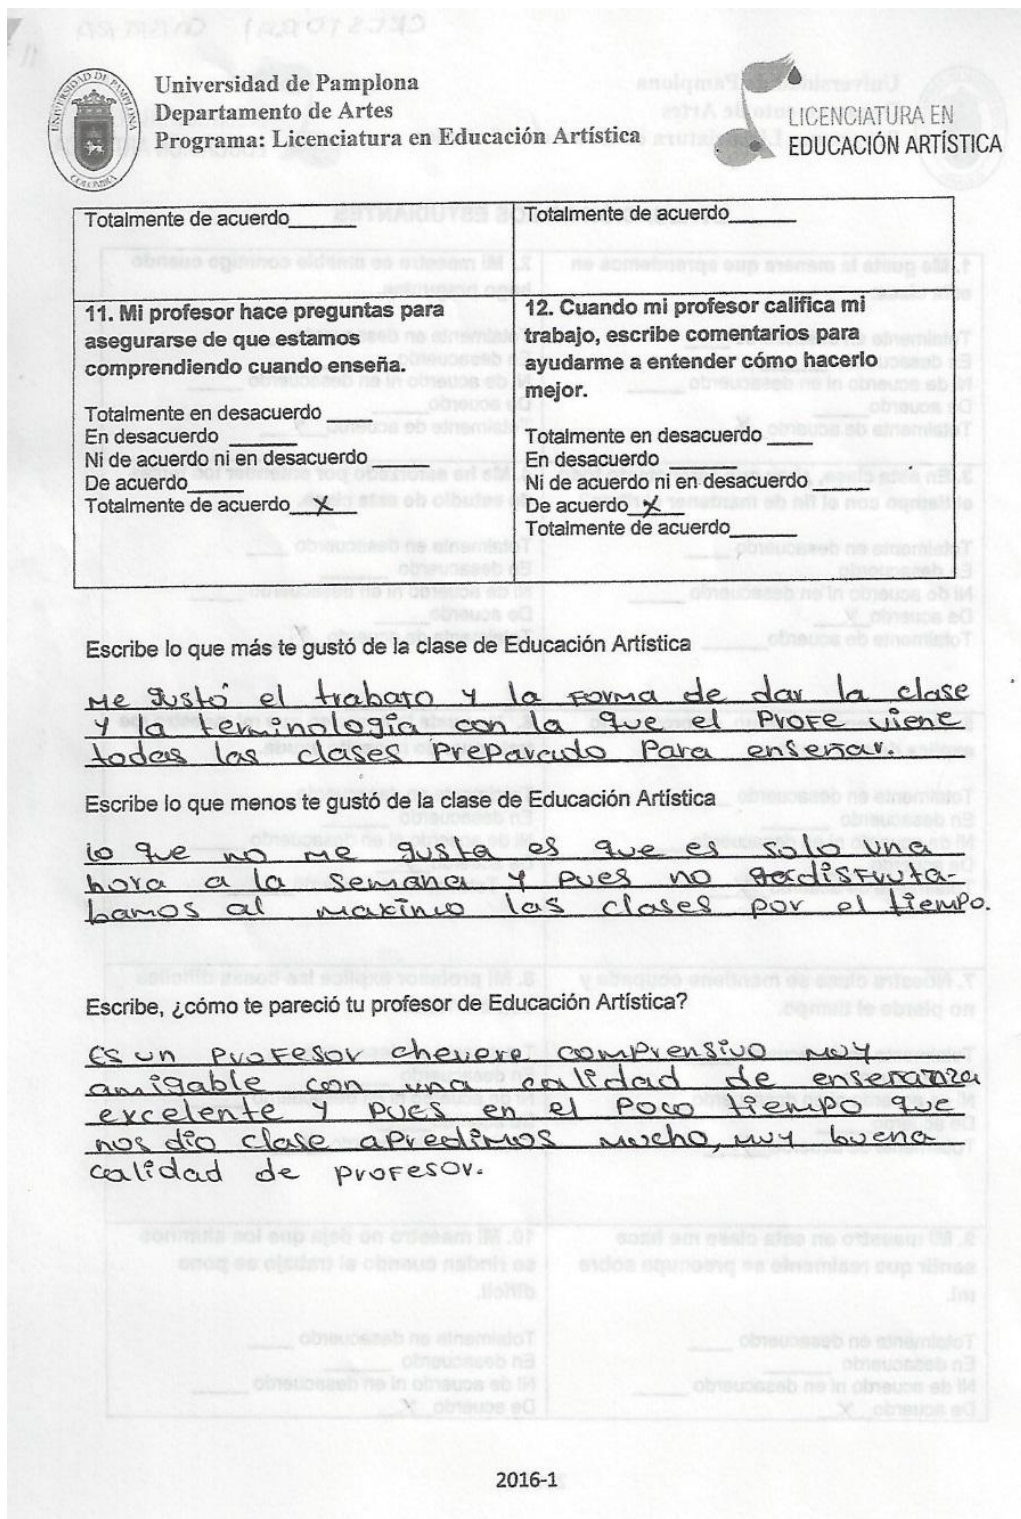 Universidad de Pamplona
Departamento de Artes
Programa: Licenciatura en Educación Artística
UNIVERSIDAD DE PAMPLONA
COLOMBIA
LICENCIATURA EN
EDUCACIÓN ARTÍSTICA
Totalmente de acuerdo______
Totalmente de acuerdo______
11. Mi profesor hace preguntas para
asegurarse de que estamos
comprendiendo cuando enseña.
Totalmente en desacuerdo ____
En desacuerdo ______
Ni de acuerdo ni en desacuerdo_____
De acuerdo_____
Totalmente de acuerdo__X__
12. Cuando mi profesor califica mi
trabajo, escribe comentarios para
ayudarme a entender cómo hacerlo
mejor.
Totalmente en desacuerdo ____
En desacuerdo ______
Ni de acuerdo ni en desacuerdo _____
De acuerdo_X__
Totalmente de acuerdo______
Escribe lo que más te gustó de la clase de Educación Artística
Me gustó el trabajo y la forma de dar la clase
y la terminologia con la que el Profe viene
todas las clases Preparado Para enseñar.
Escribe lo que menos te gustó de la clase de Educación Artística
lo que no me gusta es que es solo una
hora a la semana y pues no disfruta-
bamos al maximo las clases por el tiempo.
Escribe, ¿cómo te pareció tu profesor de Educación Artística?
Es un Profesor chevere comprensivo muy
amigable con una calidad de enseñanza
excelente y pues en el Poco tiempo que
nos dio clase apredimos mucho, muy buena
calidad de profesor.
2016-1